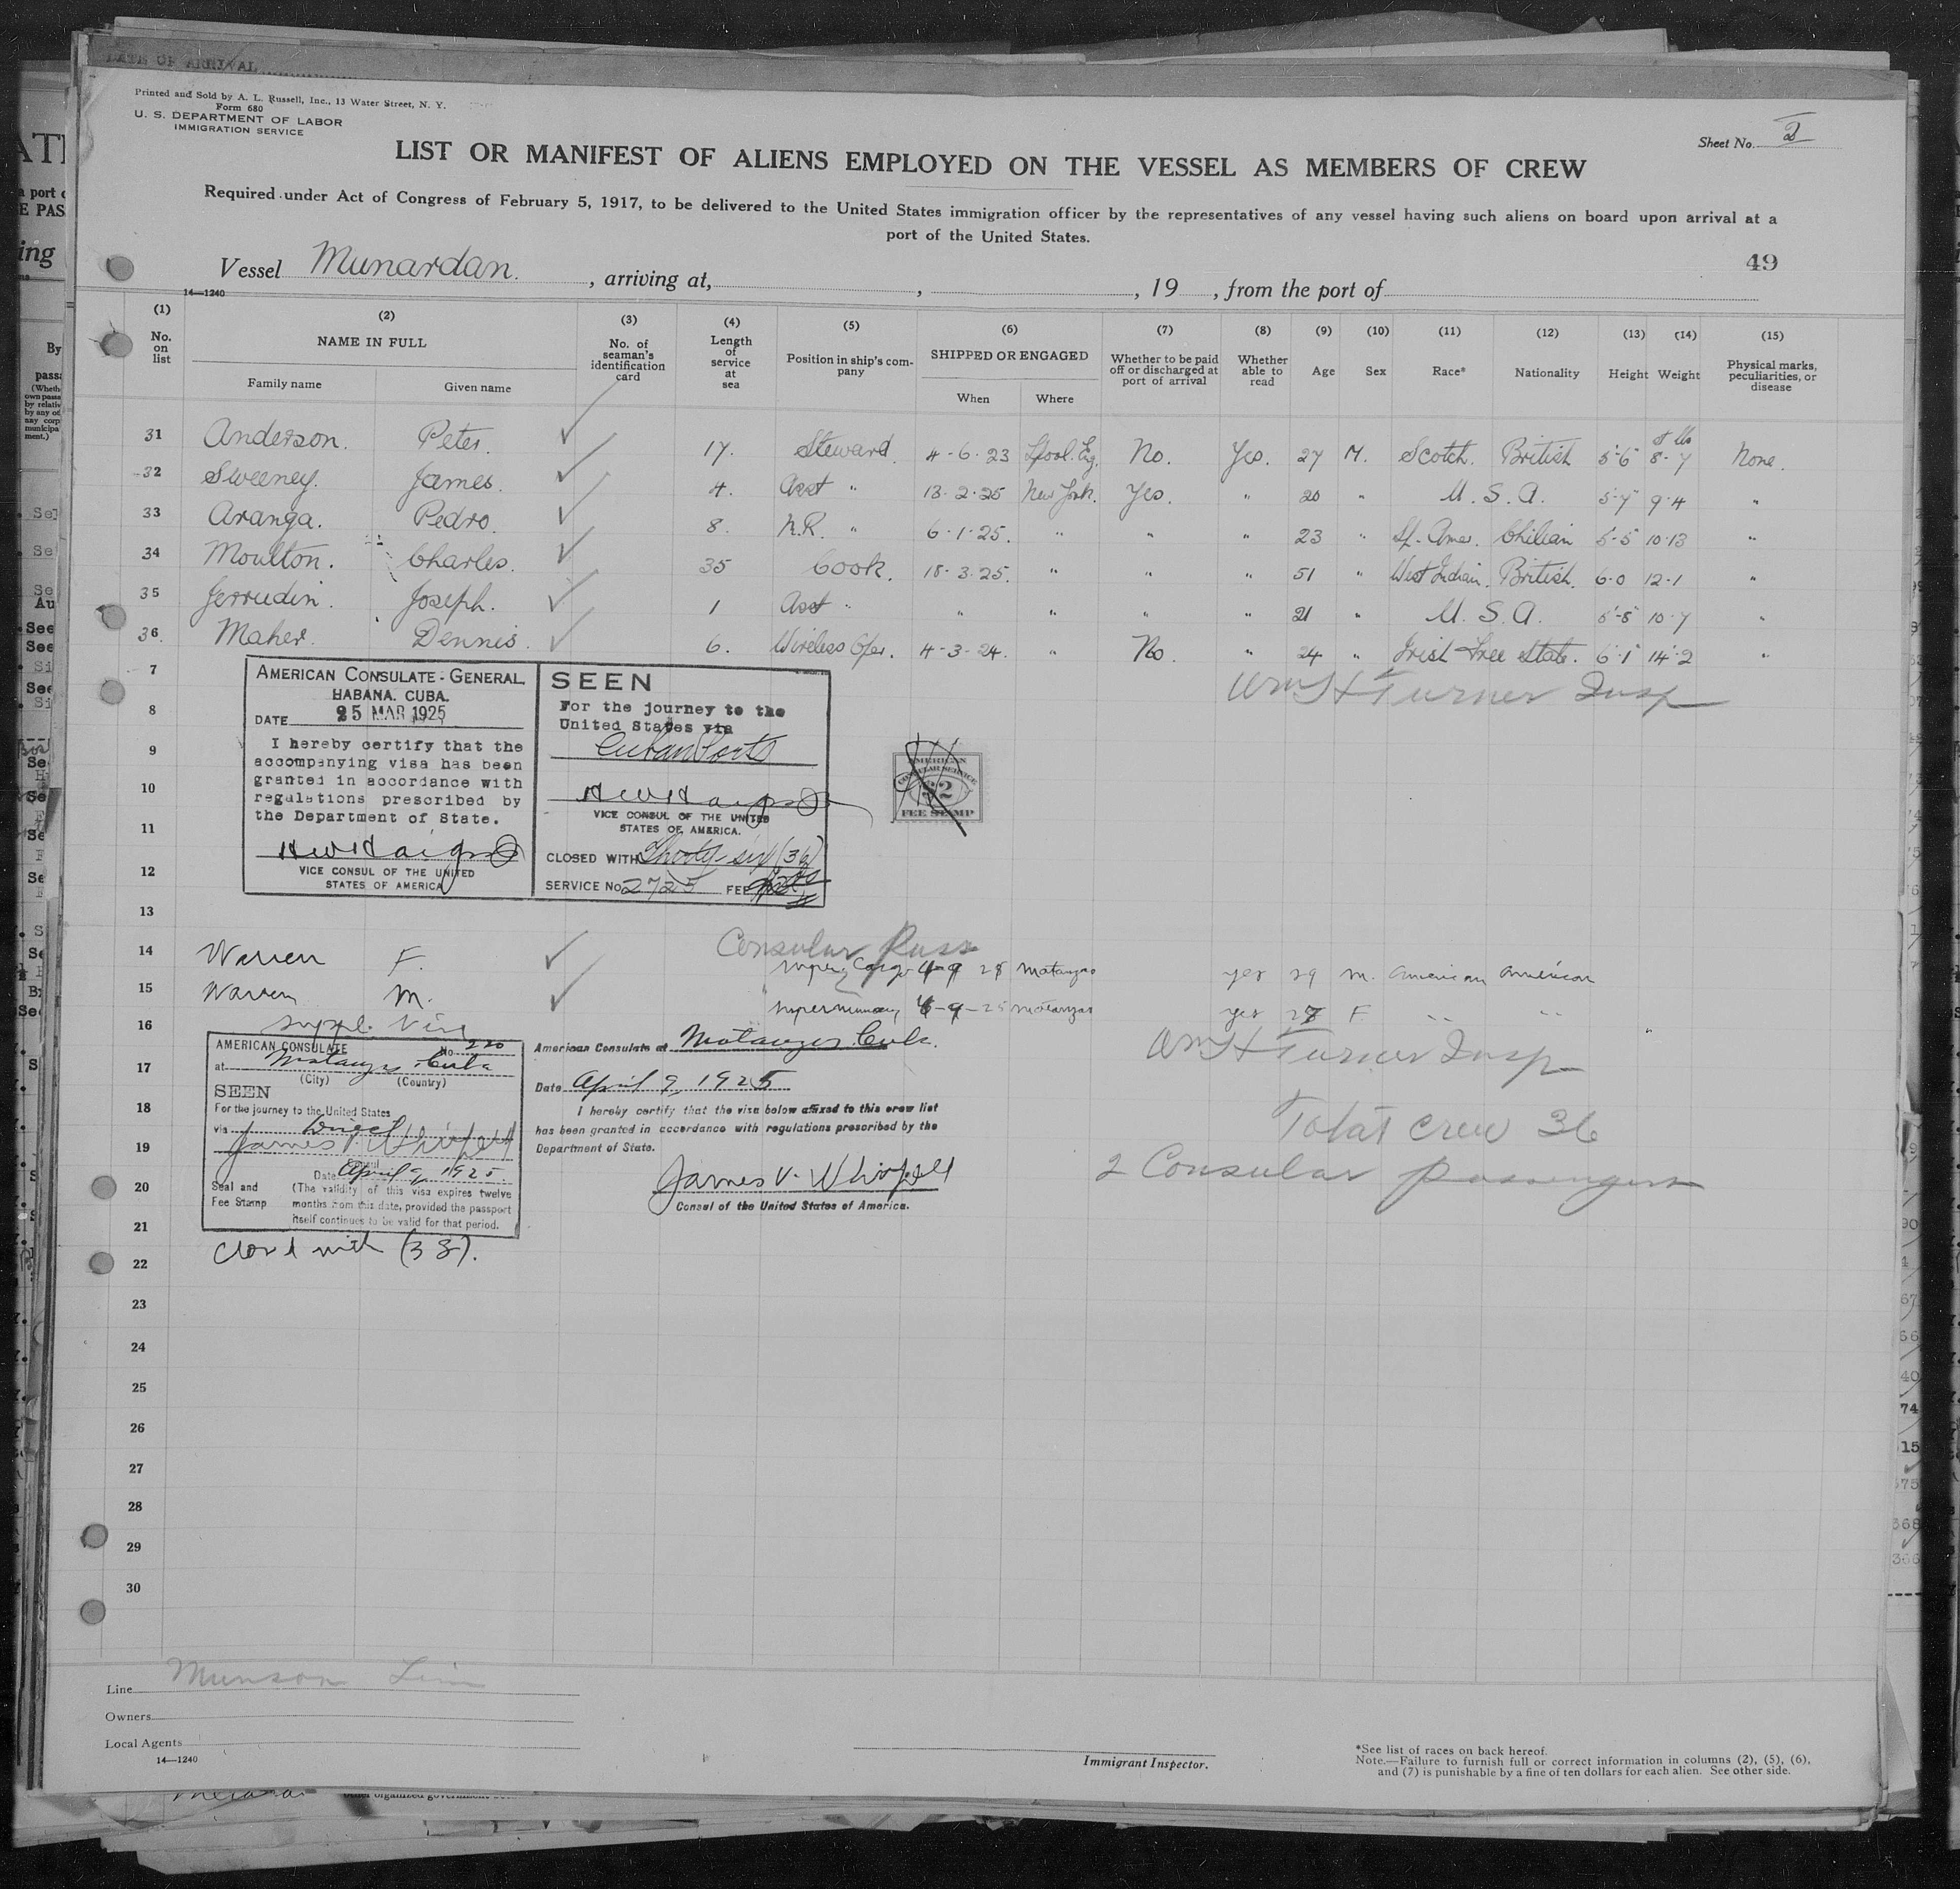 DATE OF ARRIVAL
Printed and Sold by A. L. Russell, Inc., 13 Water Street, N. Y.
Form 680
U. S. DEPARTMENT OF LABOR
IMMIGRATION SERVICE
Sheet No. 2
LIST OR MANIFEST OF ALIENS EMPLOYED ON THE VESSEL AS MEMBERS OF CREW
Required under Act of Congress of February 5, 1917, to be delivered to the United States immigration officer by the representatives of any vessel having such aliens on board upon arrival at a
port of the United States.
49
Vessel Munardan. , arriving at, , , 19 , from the port of
14—1240
(1) (2) (3) (4) (5) (6) (7) (8) (9) (10) (11) (12) (13) (14) (15)
No. on list NAME IN FULL No. of seaman's identification card Length of service at sea Position in ship's company SHIPPED OR ENGAGED Whether to be paid off or discharged at port of arrival Whether able to read Age Sex Race* Nationality Height Weight Physical marks, peculiarities, or disease
Family name Given name When Where
31 Anderson. Peter. 17. Steward 4-6-23 Lpool. Eng. No. Yes. 27 M. Scotch. British 5'6" 8-7 None.
32 Sweeney. James. 4. Asst " 13-2-25 New York. Yes. " 20 " U. S. A. 5-7 9-4 "
33 Aranga. Pedro. 8. N.R. " 6-1-25. " " " 23 " Sp. Amer. Chilian 5-5 10-13 "
34 Moulton. Charles. 35 Cook. 18-3-25. " " " 51 " West Indian. British. 6-0 12-1 "
35 Jerrudin. Joseph. 1 Asst " " " " " 21 " U. S. A. 5-8 10-7 "
36 Maher. Dennis. 6. Wireless Oper. 4-3-24. " No. " 24 " Irish Free State. 6-1 14-2 "
7
Wm H Turner Insp
AMERICAN CONSULATE-GENERAL
HABANA, CUBA.
DATE 25 MAR 1925
I hereby certify that the
accompanying visa has been
granted in accordance with
regulations prescribed by
the Department of State.
VICE CONSUL OF THE UNITED
STATES OF AMERICA
SEEN
For the journey to the
United States via
Cuban Ports
VICE CONSUL OF THE UNITED
STATES OF AMERICA.
CLOSED WITH Thirty-six (36)
SERVICE No. 2725 FEE
AMERICAN
CONSULAR SERVICE
$2
FEE STAMP
8
9
10
11
12
13
Consular Pass
14 Warren F. Super Cargo 4-9 25 Matanzas yes 29 M. American American
15 Warren M. Supernumary 4-9-25 Matanzas yes 27 F. " "
16 Suppl. Visa
AMERICAN CONSULATE No. 220
at Matanzas Cuba
(City) (Country)
SEEN
For the journey to the United States
via Direct
James V. Whitfield
Consul
Date April 9, 1925
Seal and
Fee Stamp
(The validity of this visa expires twelve
months from this date, provided the passport
itself continues to be valid for that period.
closed with (38).
American Consulate at Matanzas Cuba.
Date April 9, 1925
I hereby certify that the visa below affixed to this crew list
has been granted in accordance with regulations prescribed by the
Department of State.
James V. Whitfield
Consul of the United States of America.
Wm H Turner Insp
Total crew 36
2 Consular passengers
17
18
19
20
21
22
23
24
25
26
27
28
29
30
Line Munson Line
Owners
Local Agents
14—1240
Immigrant Inspector.
*See list of races on back hereof.
Note.—Failure to furnish full or correct information in columns (2), (5), (6),
and (7) is punishable by a fine of ten dollars for each alien. See other side.